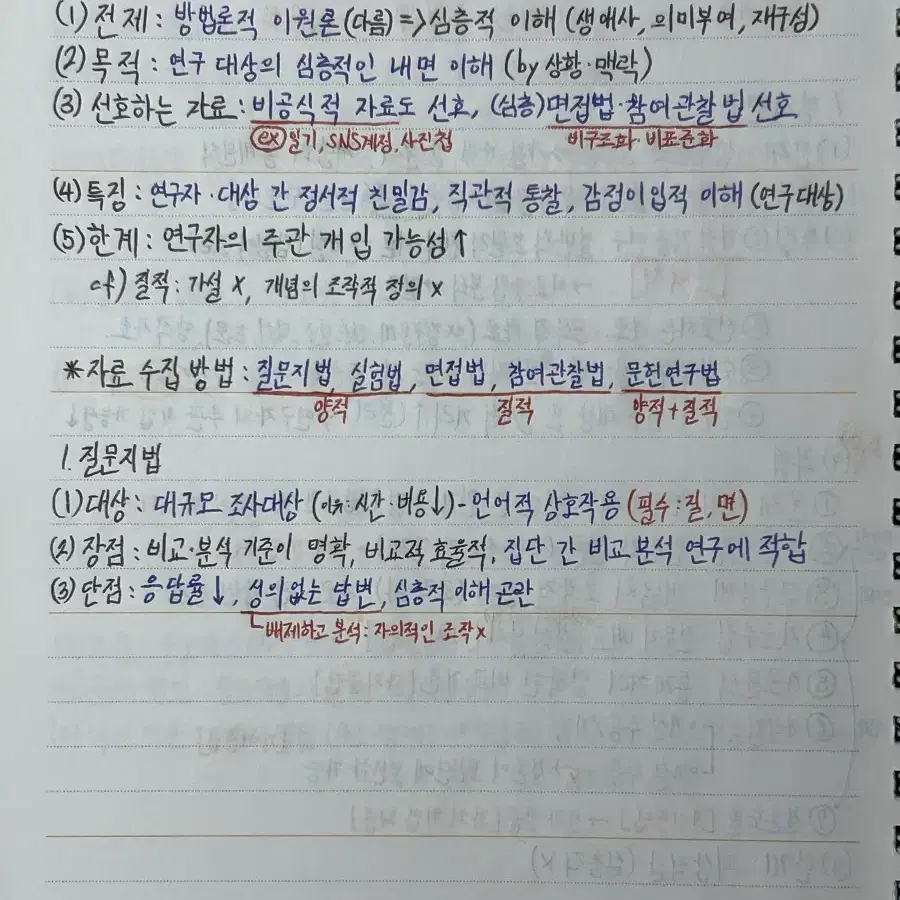 (1) 전제 : 방법론적 이원론(다름) => 심층적 이해 (생애사, 의미부여, 재구성)
(2) 목적 : 연구 대상의 심층적인 내면 이해 (by 상황·맥락)
(3) 선호하는 자료 : 비공식적 자료도 선호, (심층)면접법·참여관찰법 선호
ex) 일기, SNS계정, 사진첩 비구조화·비표준화
(4) 특징 : 연구자·대상 간 정서적 친밀감, 직관적 통찰, 감정이입적 이해 (연구대상)
(5) 한계 : 연구자의 주관 개입 가능성↑
cf) 질적 : 가설 X, 개념의 조작적 정의 X
*자료 수집 방법 : 질문지법, 실험법, 면접법, 참여관찰법, 문헌연구법
양적 질적 양적+질적
1. 질문지법
(1) 대상 : 대규모 조사대상 (이유:시간·비용↓) - 언어적 상호작용 (필수:질, 면)
(2) 장점 : 비교·분석 기준이 명확, 비교적 효율적, 집단 간 비교 분석 연구에 적합
(3) 단점 : 응답률↓, 성의없는 답변, 심층적 이해 곤란
배제하고 분석 : 자의적인 조작 X